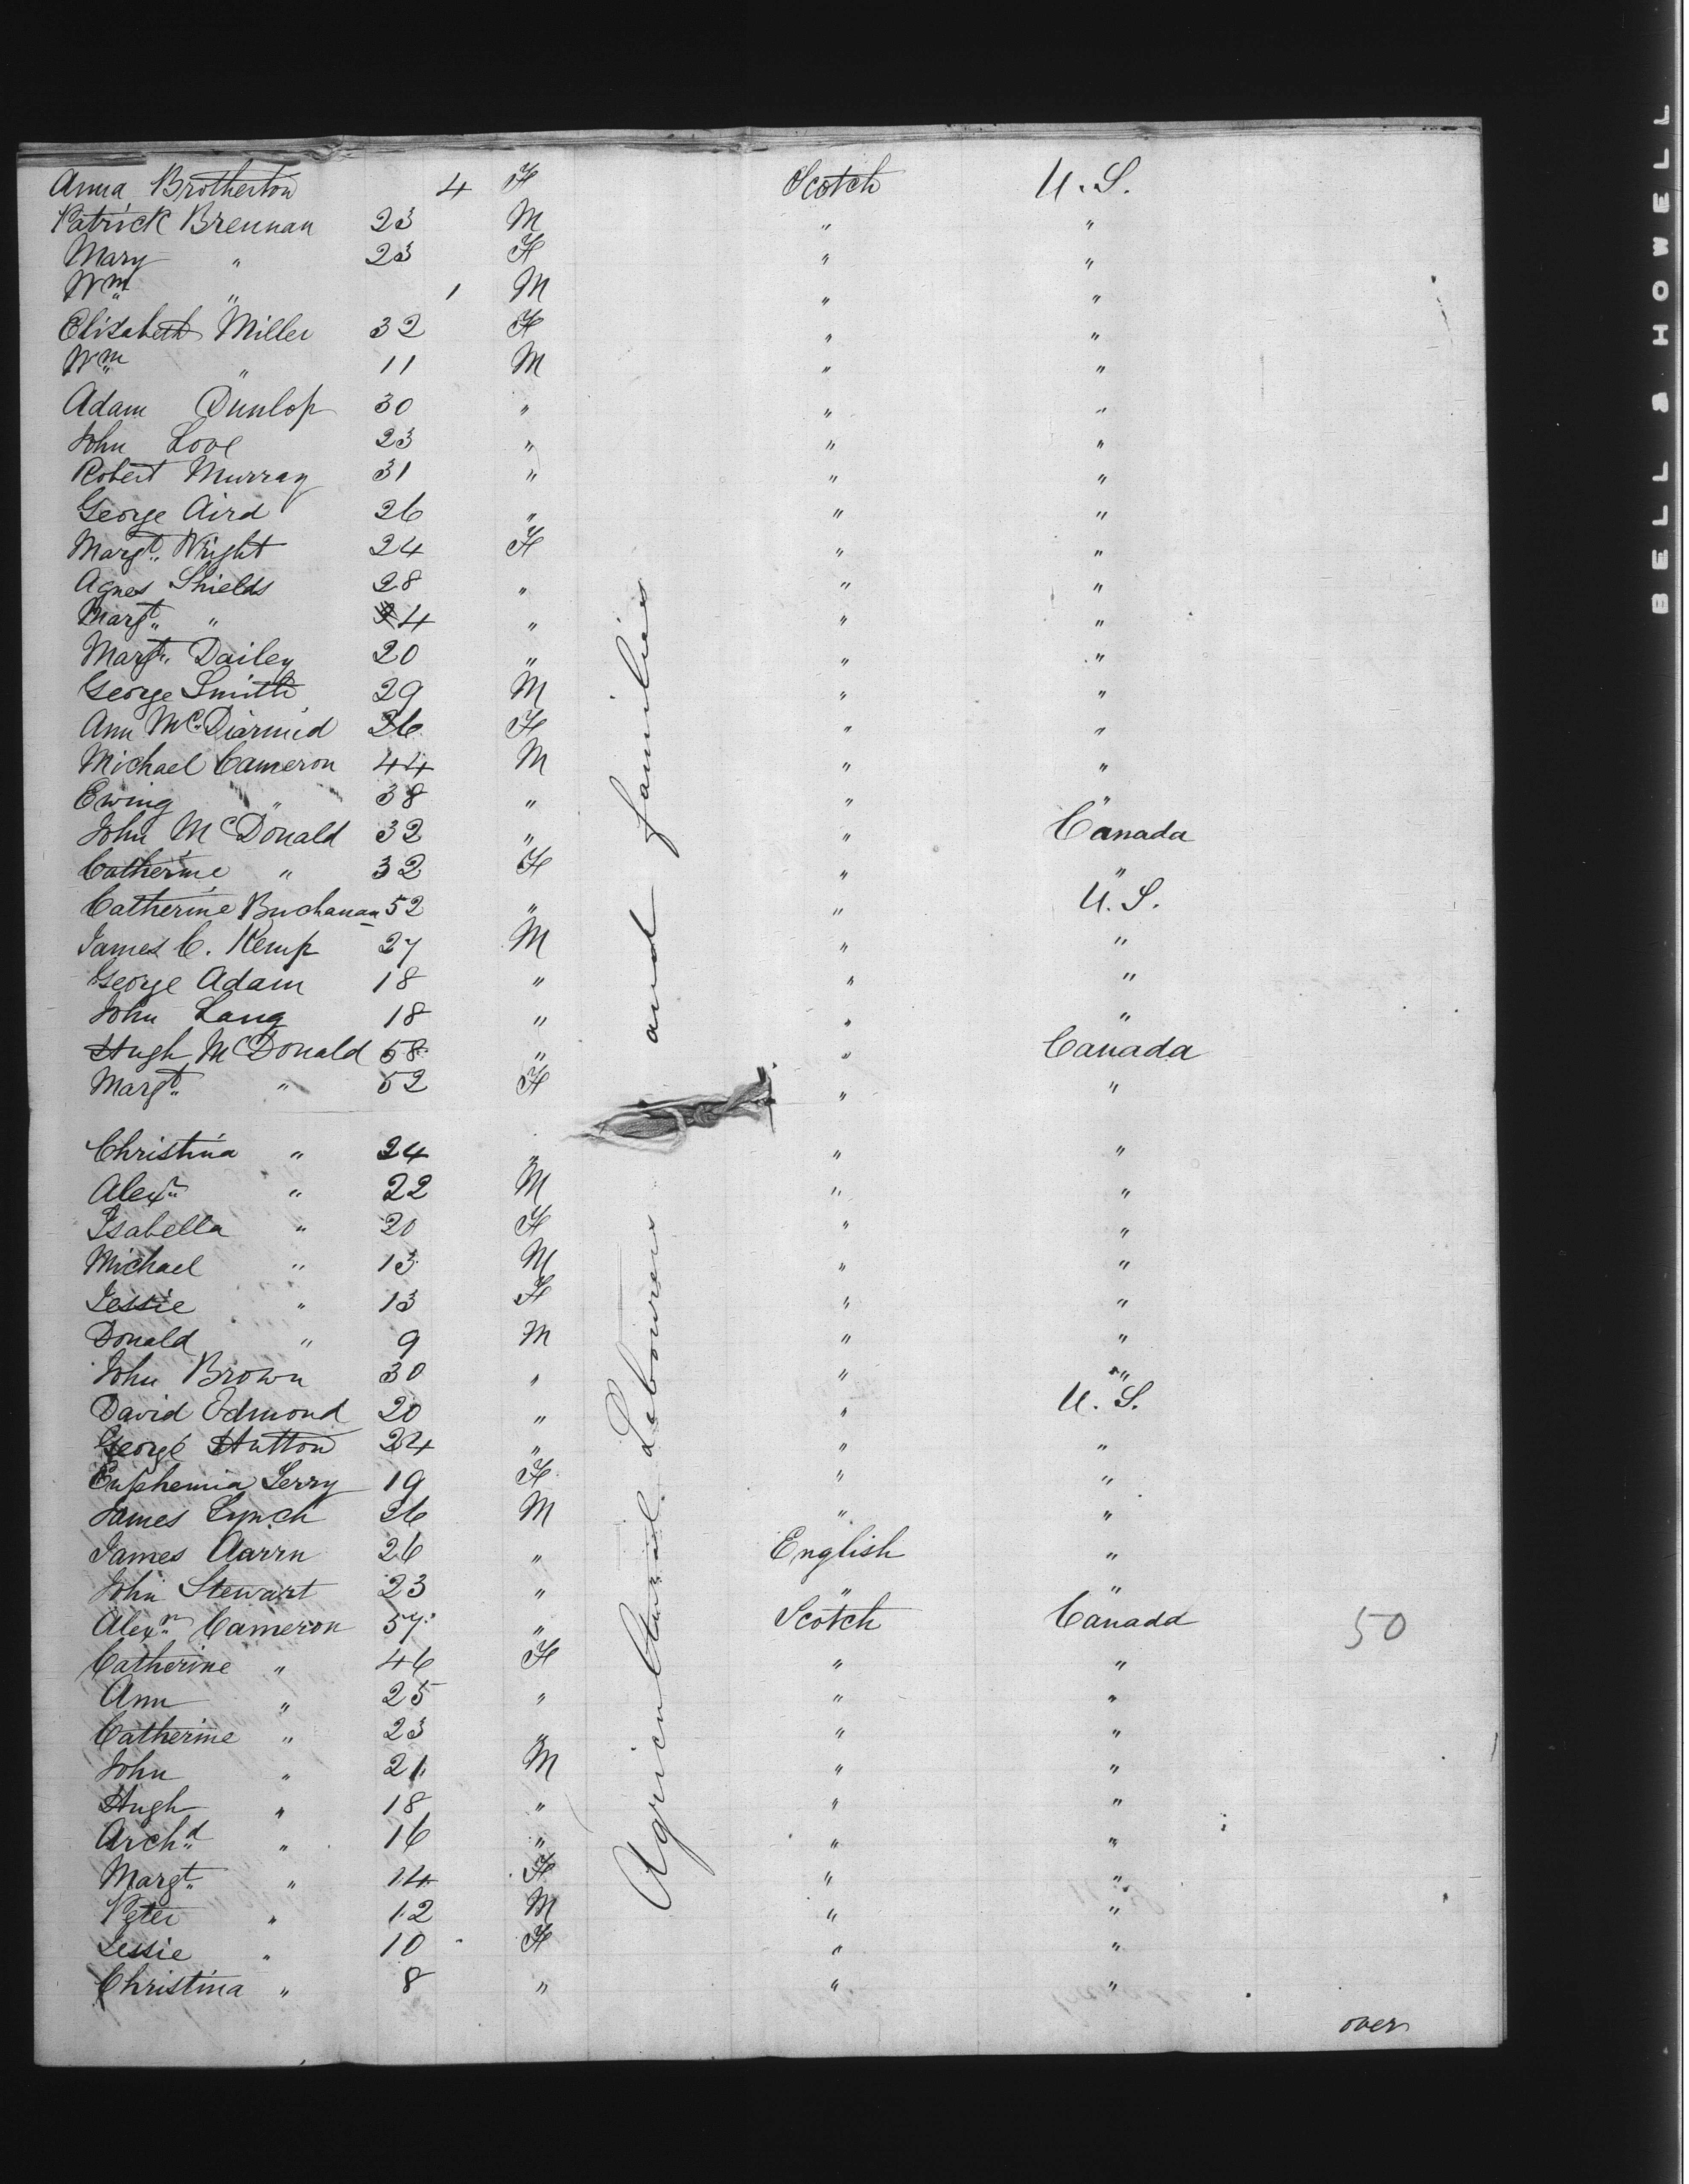 Anna Brotherton 4 F Scotch U.S.
Patrick Brennan 23 M " "
Mary " 23 F " "
Wm " 1 M " "
Elizabeth Miller 32 F " "
Wm " 11 M " "
Adam Dunlop 30 " " "
John Love 23 " " "
Robert Murray 31 " " "
George Aird 26 " " "
Margt. Wright 24 F " "
Agnes Shields 28 " " "
Margt. " 4 " " "
Margt. Dailey 20 " " "
George Smith 29 M " "
Ann McDiarmid 26 F " "
Michael Cameron 44 M " "
Ewing " 38 " " "
John McDonald 32 " " Canada
Catherine " 32 F " "
Catherine Buchanan 52 " " U.S.
James C. Kemp 27 M " "
George Adam 18 " " "
John Lang 18 " " "
Hugh McDonald 58 " " Canada
Margt. " 52 F " "
Christina " 24 " " "
Alexr " 22 M " "
Isabella " 20 F " "
Michael " 13 M " "
Jessie " 13 F " "
Donald " 9 M " "
John Brown 30 " " "
David Edmond 20 " " U.S.
George Hutton 24 " " "
Euphemia Terry 19 F " "
James Lynch 26 M " "
James Aarrn 26 " English "
John Stewart 23 " " "
Alexr Cameron 57 " Scotch Canada 50
Catherine " 46 F " "
Ann " 25 " " "
Catherine " 23 " " "
John " 21 M " "
Hugh " 18 " " "
Archd " 16 " " "
Margt. " 14 F " "
Peter " 12 M " "
Jessie " 10 F " "
Christina " 8 " " "
over
Agricultural Labourers and families
BELL & HOWELL